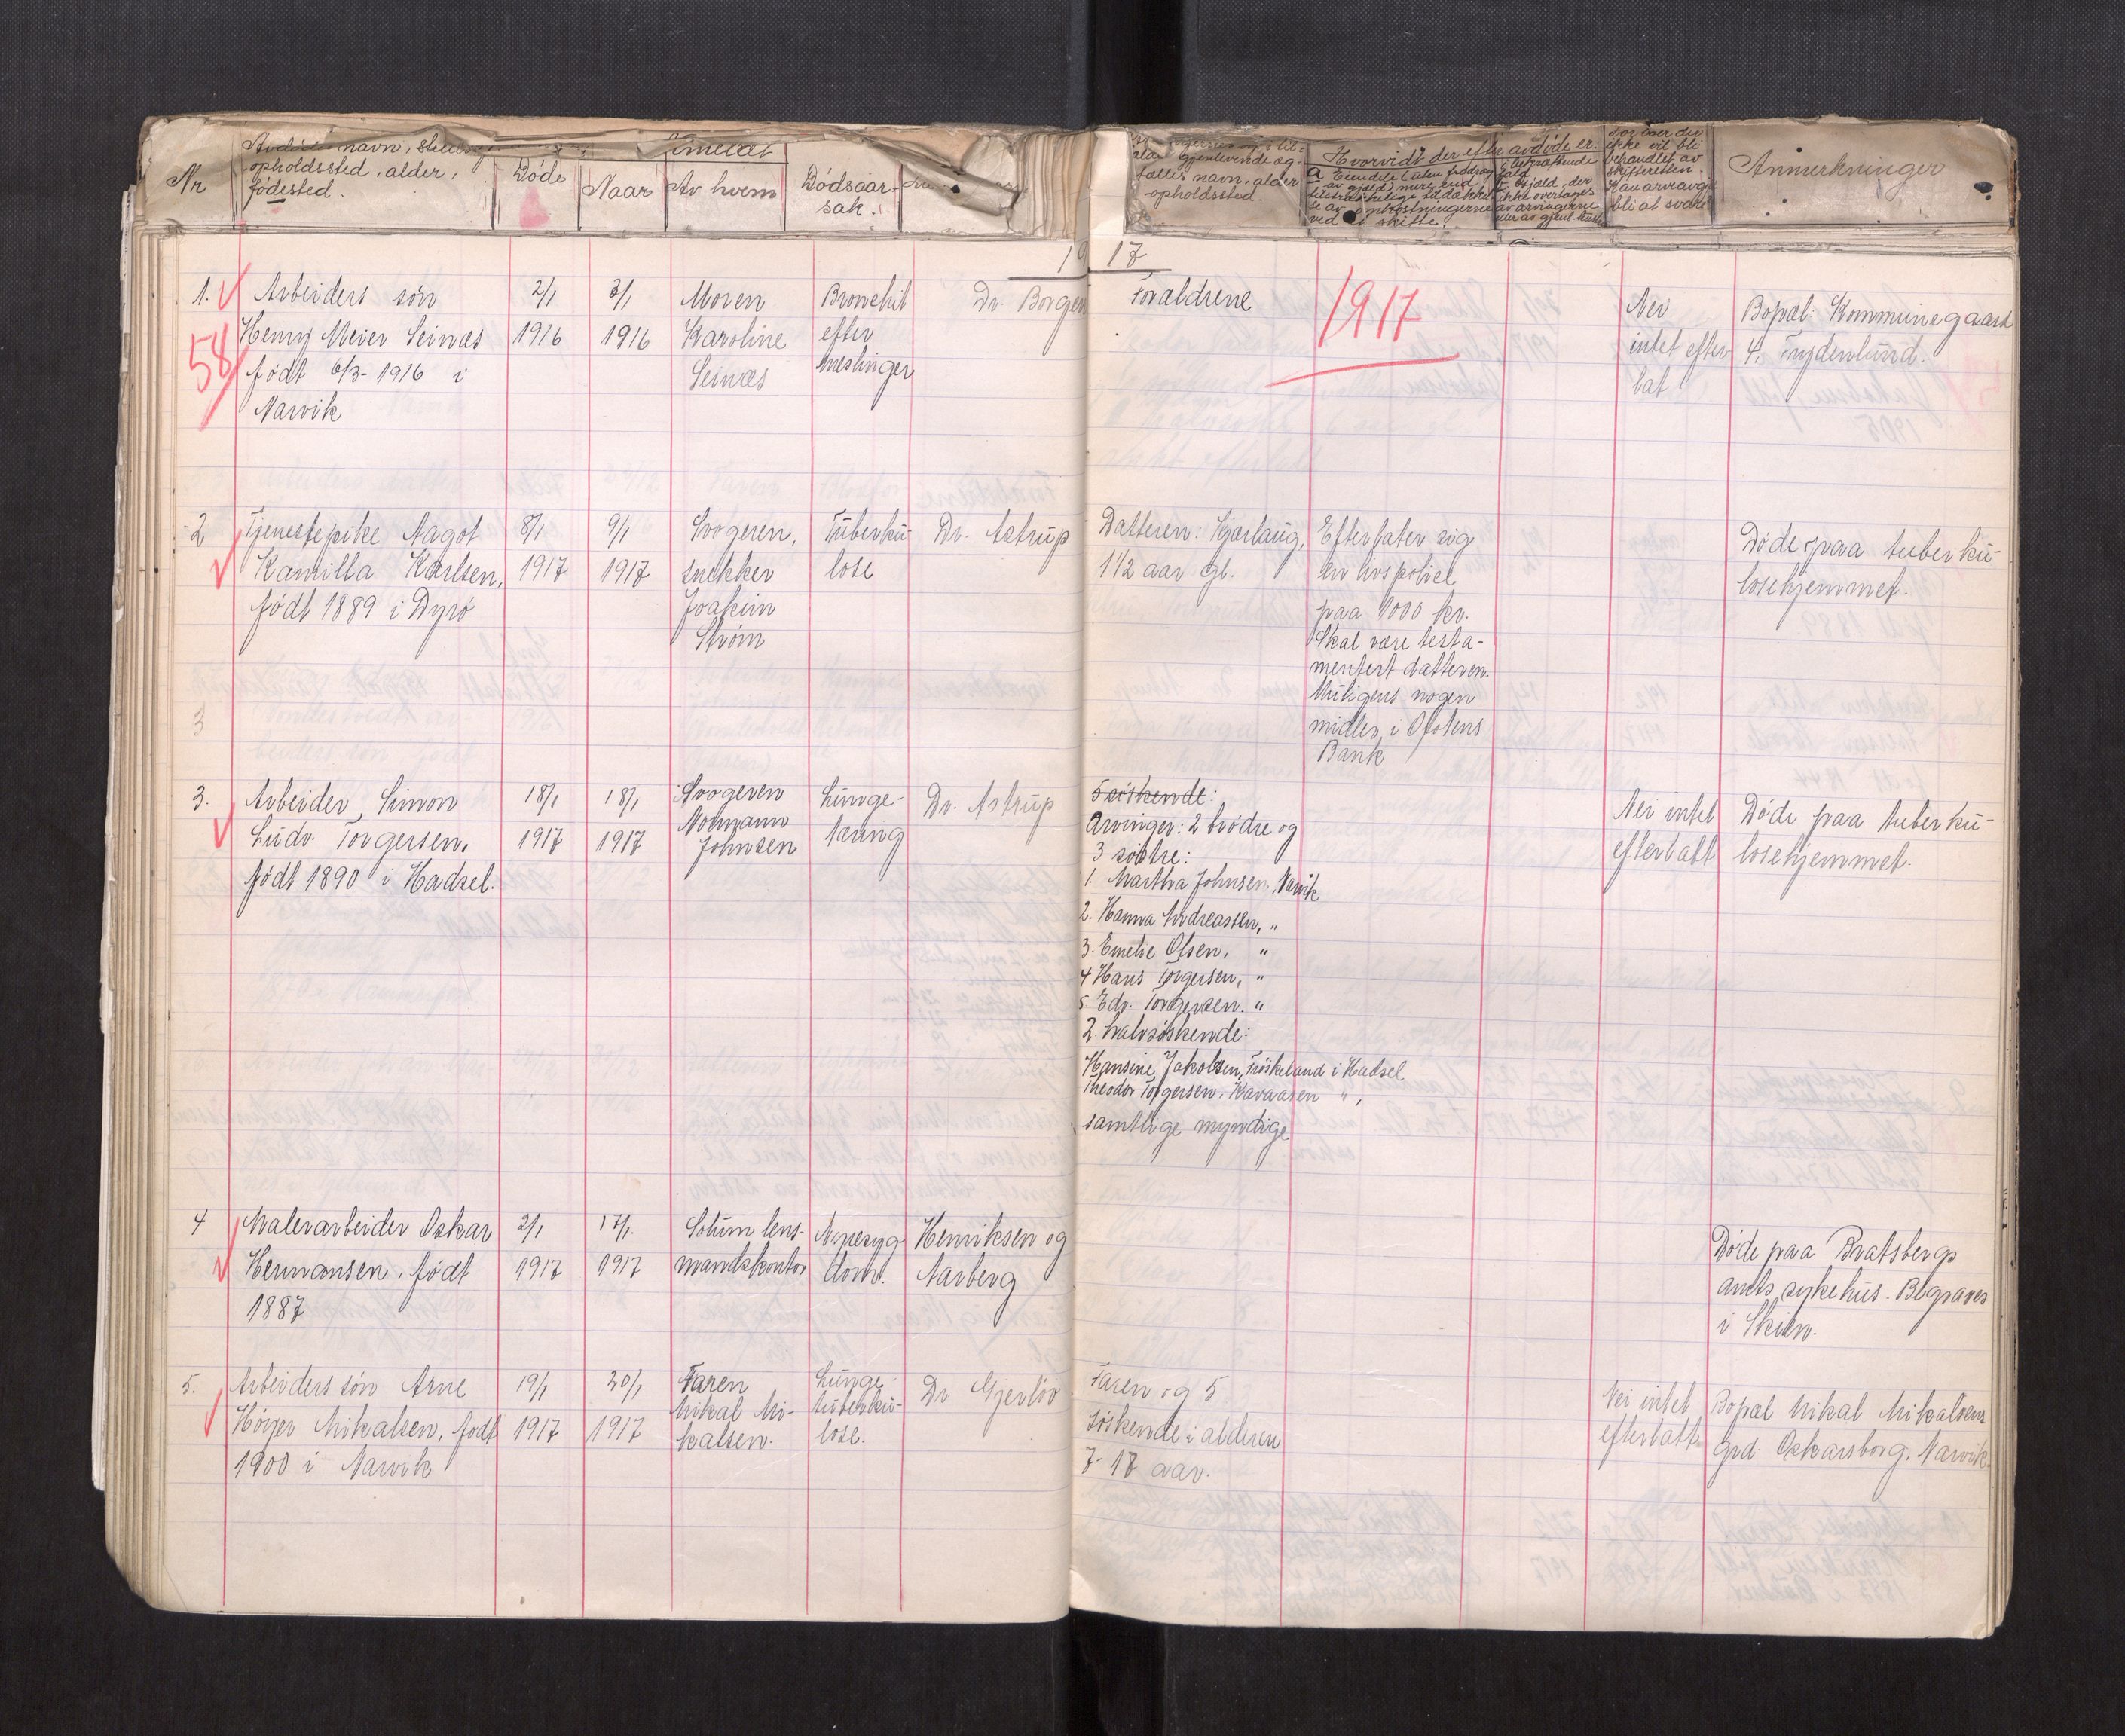 Nr
navn,
opholdssted, alder,
fødested.
Døde
Anmeldt
Naar
Av hvem
Dødsaar-
sak.
gjenlevende æg-
tefælles navn, alder
opholdssted.
Hvorvidt der efter avdøde er:
ved et skifte.
ikke vil bli
behandlet av
skifteretten.
Anmerkninger
19 17
1917
1.
58
Arbeiders søn
Henry Meier Seinæs
født 6/3-1916 i
Narvik
2/1
1916
3/1
1916
Moren
Karoline
Seinæs
Bronchit
efter
mæslinger
Dr. Borgen
Foraldrene
Nei
intet efter
lat
Bopæl: Kommunegaard
4. Frydenlund.
2
Tjenestepike Aagot
Kamilla Karlsen,
født 1889 i Dyrø
8/1
1917
9/1
1917
Svogeren,
snekker
Joakim
Strøm
Tuberku-
lose
Dr. Astrup
Datteren: Hjørlaug,
1 1/2 aar gl.
Efterlater sig
en livspolice
paa 1000 kr.
Skal være testa-
mentert datteren.
Muligens nogen
midler i Ofotens
Bank
Døde paa tuberku-
losehjemmet.
3
3.
Arbeider Simon
Ludv. Torgersen,
født 1890 i Hadsel.
18/1
1917
18/1
1917
Svogeren
Normann
Johnsen
Lunge-
tæring
Dr. Astrup
Søskende:
Arvinger: 2 brødre og
3 søstre:
1. Martha Johnsen, Narvik
2. Hanna Andreassen, "
3. Emelie Olsen, "
4 Hans Torgersen, "
5. Edv. Torgersen. "
2. halvsøskende:
Hansine Jakobsen, Frøskeland i Hadsel
Theodor Torgersen, Kavaasen "
samtlige myndige.
Nei intet
efterlatt
Døde paa tuberku-
losehjemmet.
4
Malerarbeider Oskar
Hermansen, født
1887
2/1
1917
17/1
1917
Solum lens-
mandskontor
Nyresyg-
dom.
Henriksen og
Aarberg
Døde paa Bratsbergs
amts sykehus. Begraves
i Skien.
5.
Arbeiders søn Arne
Høyer Mikalsen, født
1900 i Narvik
19/1
1917
20/1
1917
Faren
Mikal Mi-
kalsen.
Lunge-
tuberku-
lose.
Dr Gjerløv
Faren og 5
søskende i alderen
7-17 aar.
Nei intet
efterlatt
Bopæl Mikal Mikalsens
grd Oskarsborg, Narvik.